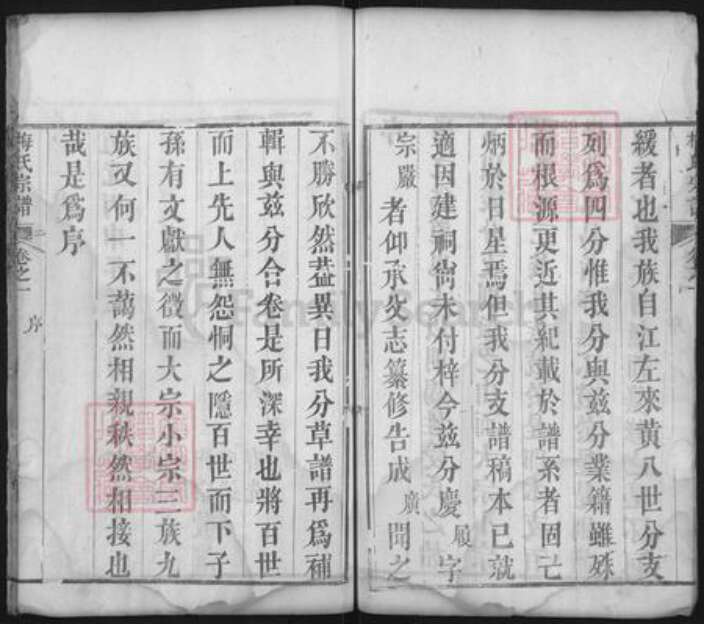 緩者也我族自江左來黃八世分支
列爲四分惟我分與茲分業籍雖殊
而根源更近其紀載於譜系者固已
炳於日星焉但我分支譜稿本已就
適因建祠尙未付梓今茲分慶履字
宗嚴者仰承父志纂修告成廣聞之
不勝欣然益異日我分草譜再爲補
輯與茲分合卷是所深幸也將百世
而上先人無怨恫之隱百世而下子
孫有文獻之徵而大宗小宗三族九
族又何一不藹然相親秩然相接也
哉是爲序
梅氏宗譜 卷之一 序
FamilySearch